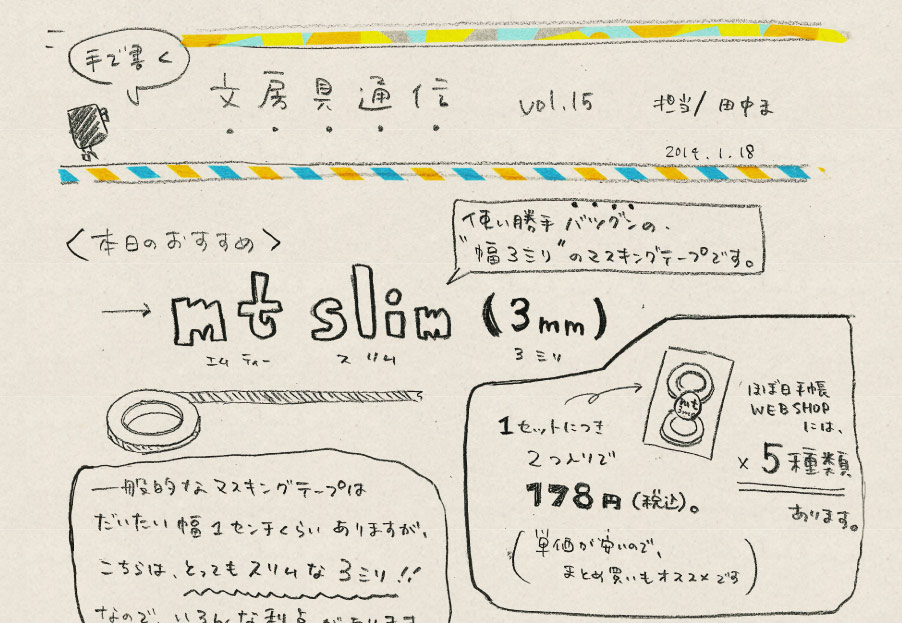 手で書く
文房具通信
vol.15
担当/田中ま
2014.1.18
〈本日のおすすめ〉
使い勝手バツグンの、
"幅3ミリ"のマスキングテープです。
→ mt slim (3mm)
エム ティー スリム 3ミリ
1セットにつき
2つ入りで
178円(税込)。
(単価が安いので、
まとめ買いもオススメです)
mt
3mm
ほぼ日手帳
WEB SHOP
には、
×5種類
あります。
一般的なマスキングテープは
だいたい幅1センチくらいありますが、
こちらは、とってもスリムな3ミリ!!
なので、いろんな利点があります